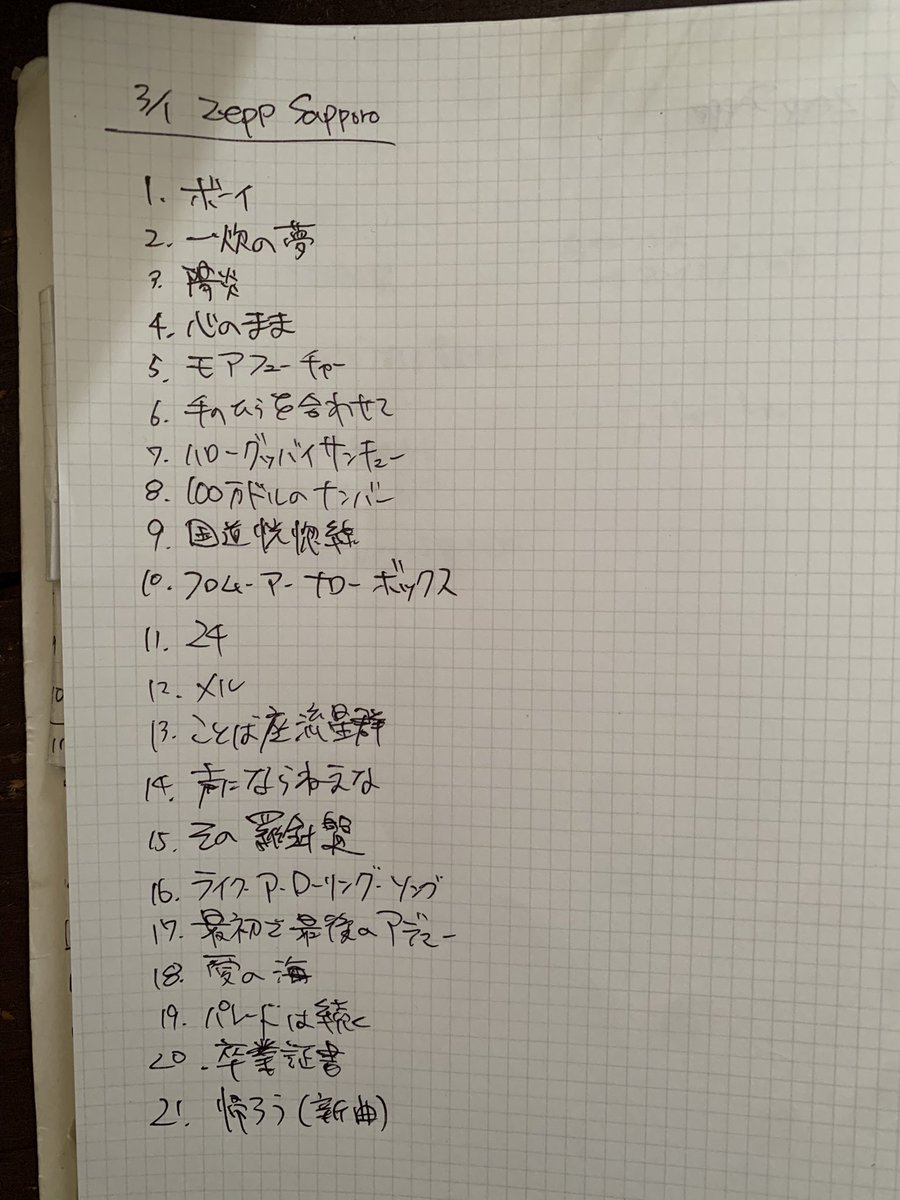 3/1 Zepp Sapporo
1. ボーイ
2. 一炊の夢
3. 陽炎
4. 心のまま
5. モアフューチャー
6. 手のひらを合わせて
7. ハローグッバイサンキュー
8. 100万ドルのナンバー
9. 国道恍惚線
10. フロム・ア・ナローボックス
11. 24
12. メル
13. ことば座流星群
14. 声にならねえな
15. その羅針盤
16. ライク・ア・ローリング・ソング
17. 最初で最後のアデュー
18. 愛の海
19. パレードは続く
20. 卒業証書
21. 帰ろう(新曲)
9
10
11